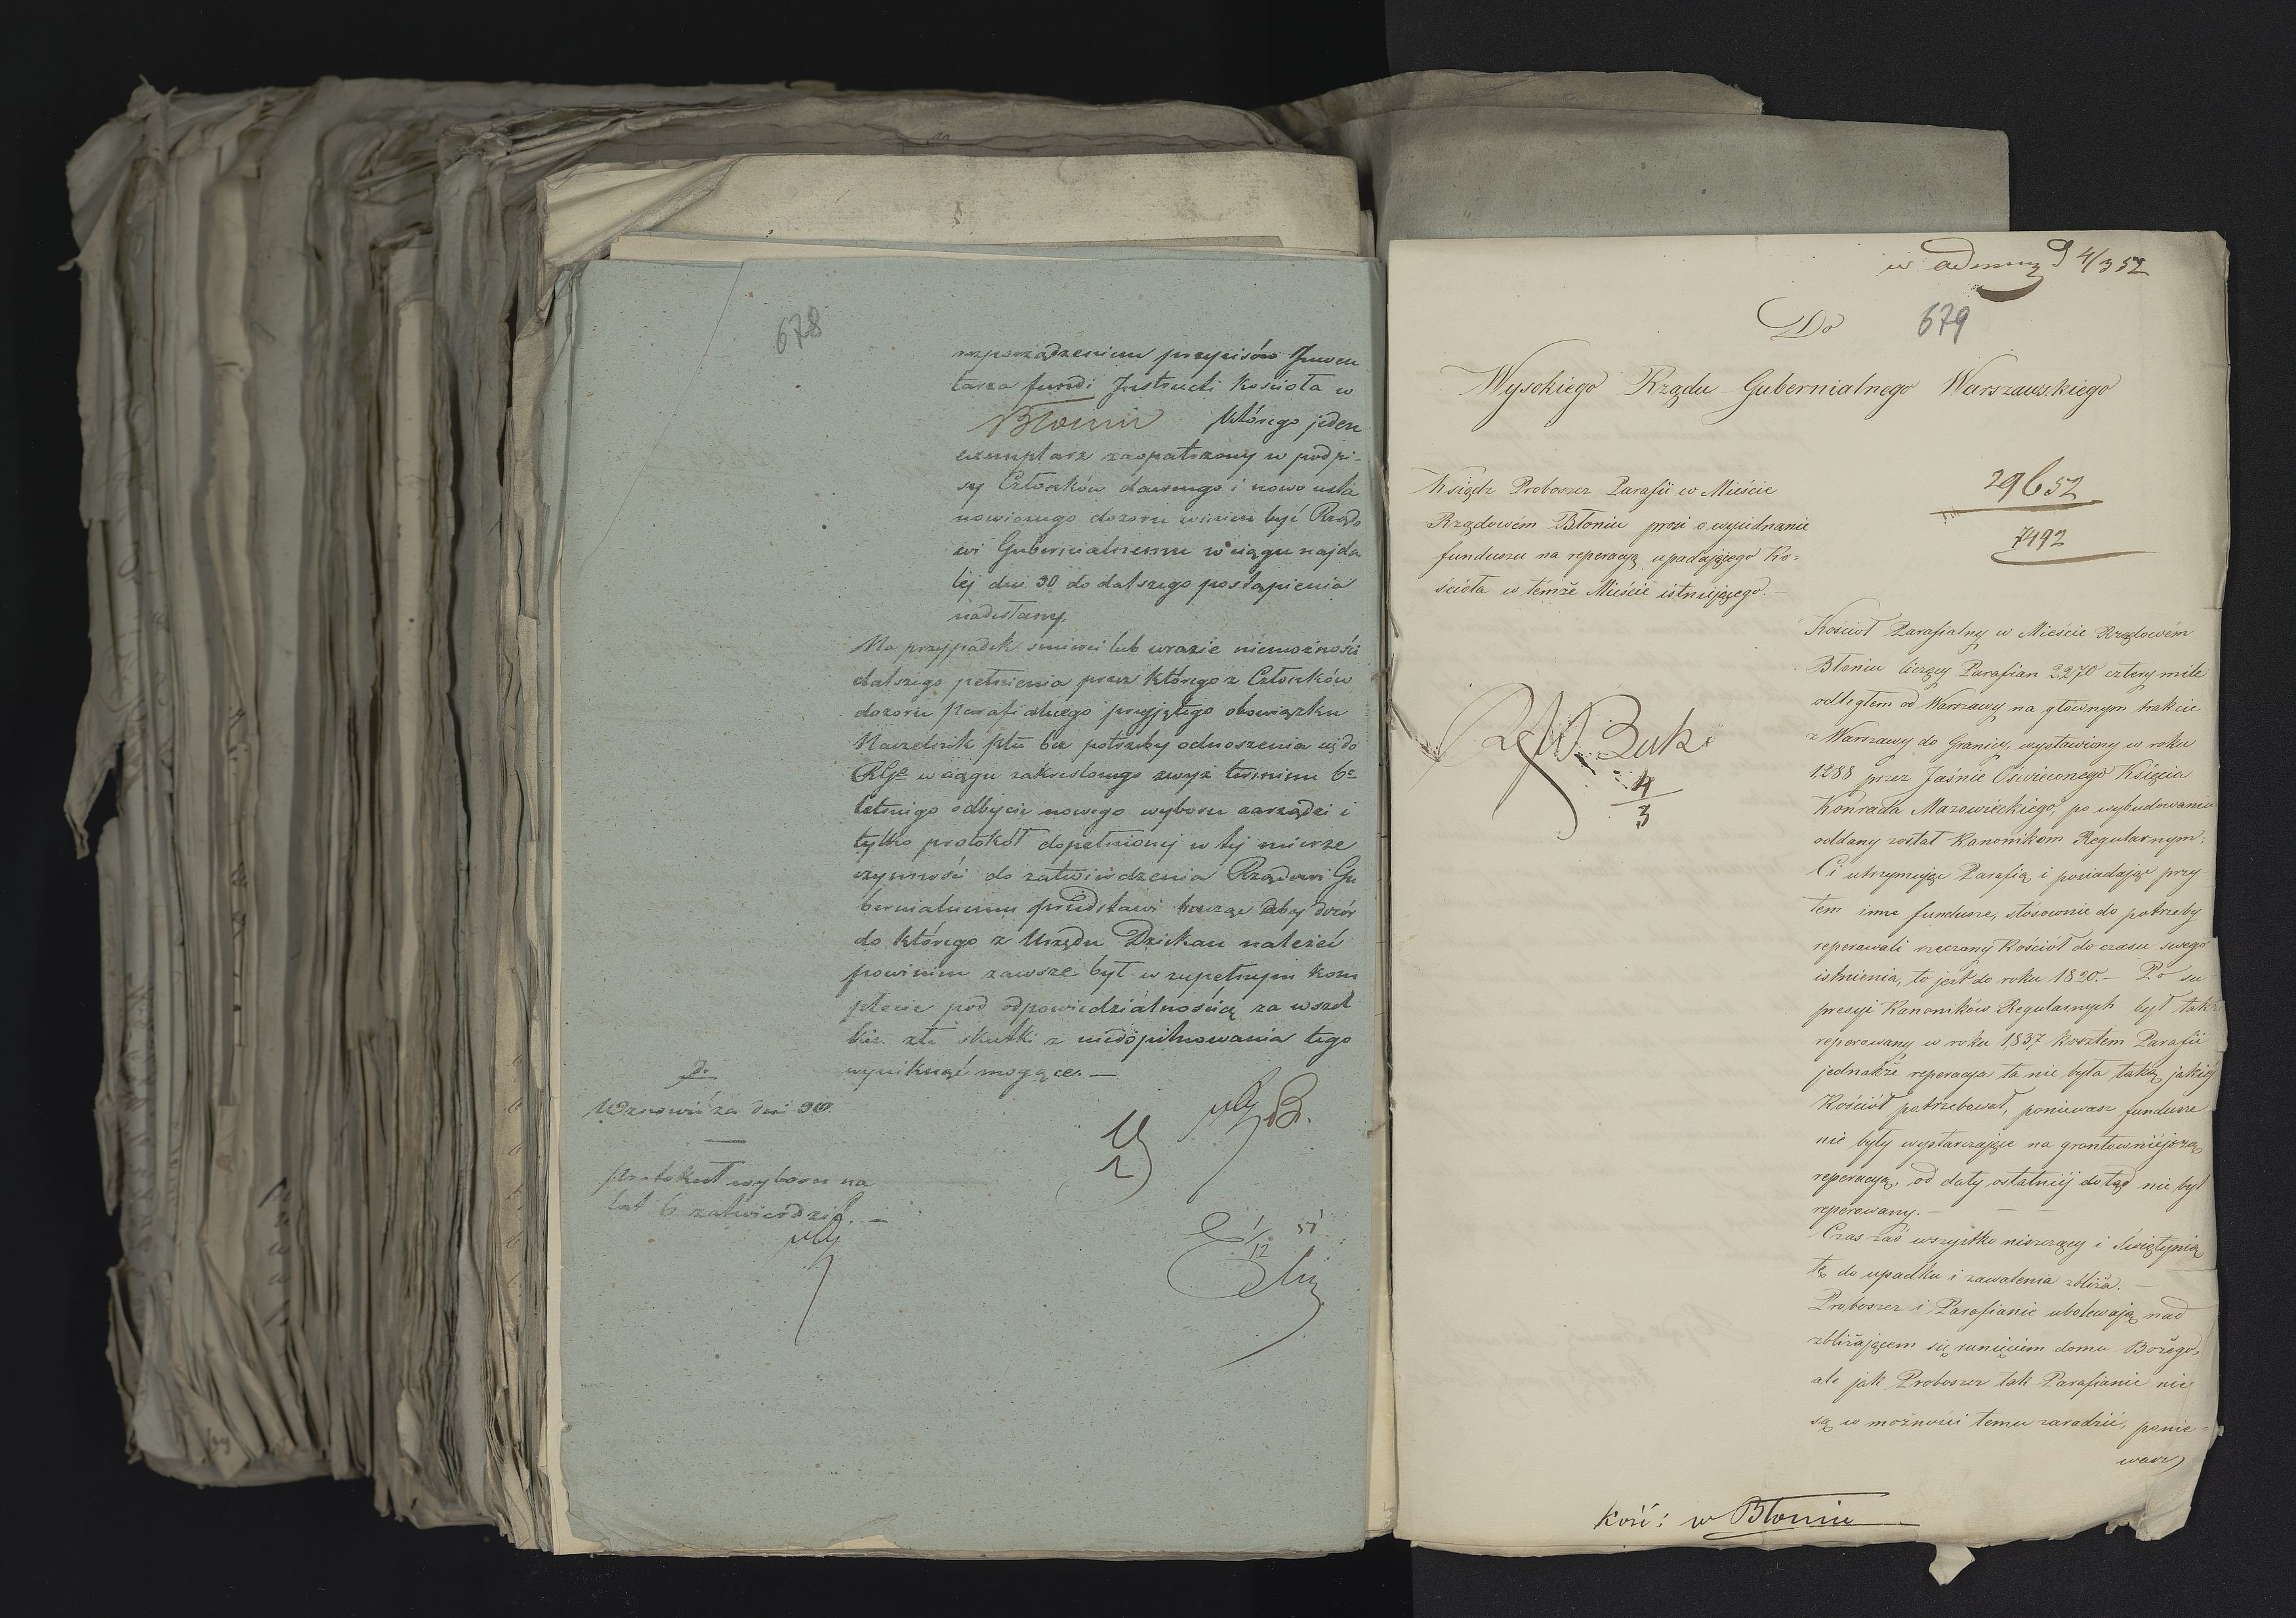 678
rozporządzeniem przepisów Inwen
tarza fundi Instructi kościoła w
Błoniu którego jeden
exemplarz zaopatrzony w podpi-
sy Członków dawnego i nowo usta
nowionego dozoru winien być Rządo
wi Gubernialnemu w ciągu najda
lej dni 30 do dalszego postąpienia
nadesłany.
Na przypadek smierci lub wrazie niemożności
dalszego pełnienia przez którego z Członków
dozoru Parafialnego przyjętego obowiązku
Naczelnik ptu bez potrzeby odnoszenia się do
RGo w ciągu zakreslonego zwyż terminu 6o
letniego odbycie nowego wyboru zarządzi i
tylko protokół dopełnionej w tej mierze
czynności do zatwierdzenia Rządowi Gu
bernialnemu przedstawi bacząc aby dozór
do którego z Urzędu Dziekan należeć
powinien zawsze był w zupełnym kom
plecie pod odpowiedzialnością za wszel
kie złe skutki z niedopilnowania tego
wyniknąć mogące. —
2.
Wznowić za dni 30.
Protokuł wyboru na
lat 6 zatwierdził. —
1/12 51
w 4/3 52
679
Do
Wysokiego Rządu Gubernialnego Warszawskiego
Ksiądz Proboszcz Parafii w Mieście
Rządowém Błoniu prosi o wyjednanie
funduszu na reperacyą upadającego Ko=
ścioła w témże Mieście istniejącego. —
29652
7492
4
3
Kościół Parafialny w Mieście Rządowém
Błoniu liczący Parafian 2270 cztery mile
odległem od Warszawy na głównym trakcie
z Warszawy do Granicy, wystawiony w roku
1288 przez Jaśnie Oświeconego Księcia
Konrada Mazowieckiego, po wybudowaniu
oddany został Kanonikom Regularnym.
Ci utrzymując Parafią i posiadając przy
tem inne fundusze, stósownie do potrzeby
reperowali rzeczony Kościół do czasu swego
istnienia, to jest do roku 1820. — Po su-
presyi Kanoników Regularnych był także
reperowany w roku 1837 kosztem Parafii
jednakże reperacya ta nie była taką jakiéj
Kościół potrzebował, ponieważ fundusze
nie były wystarczające na grontowniéjszą
reperacyą, od daty ostatniéj dotąd nie był
reperowany. —
Czas zaś wszystko niszczący i Świątynią
tę do upadku i zawalenia zbliża. —
Proboszcz i Parafianie ubolewają nad
zbliżającem się runięciem domu Bożego,
ale jak Proboszcz tak Parafianie nie
są w możności temu zaradzić, ponie=
waż
Kość: w Błoniu